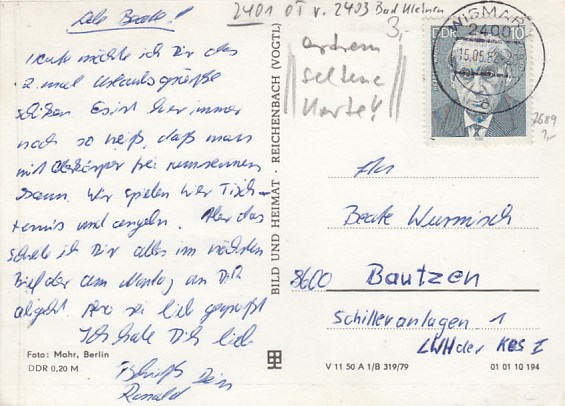 Liebe Beate!
Heute möchte ich Dir das
2. mal Urlaubsgrüße
schicken. Es ist hier immer
noch so heiß, daß man
mit Oberkörper frei rumrennen
kann. Wir spielen hier Tisch-
tennis und angeln. Aber das
schreib ich Dir alles im nächsten
Brief der am Montag an Dich
abgeht. Also sei lieb gegrüßt
Ich hab Dich lieb
Tschüß Dein
Ronald
Foto: Mohr, Berlin
DDR 0,20 M
BILD UND HEIMAT · REICHENBACH (VOGTL)
2401 OT v. 2403 Bad Kleinen
3,-
extrem
seltene
Karte!!
WISMAR
2400
15.05.
DDR 10
7689
1,-
An
Beate Wurmisch
8600 Bautzen
Schilleranlagen 1
LWH der KBS I
V 11 50 A 1/B 319/79
01 01 10 194